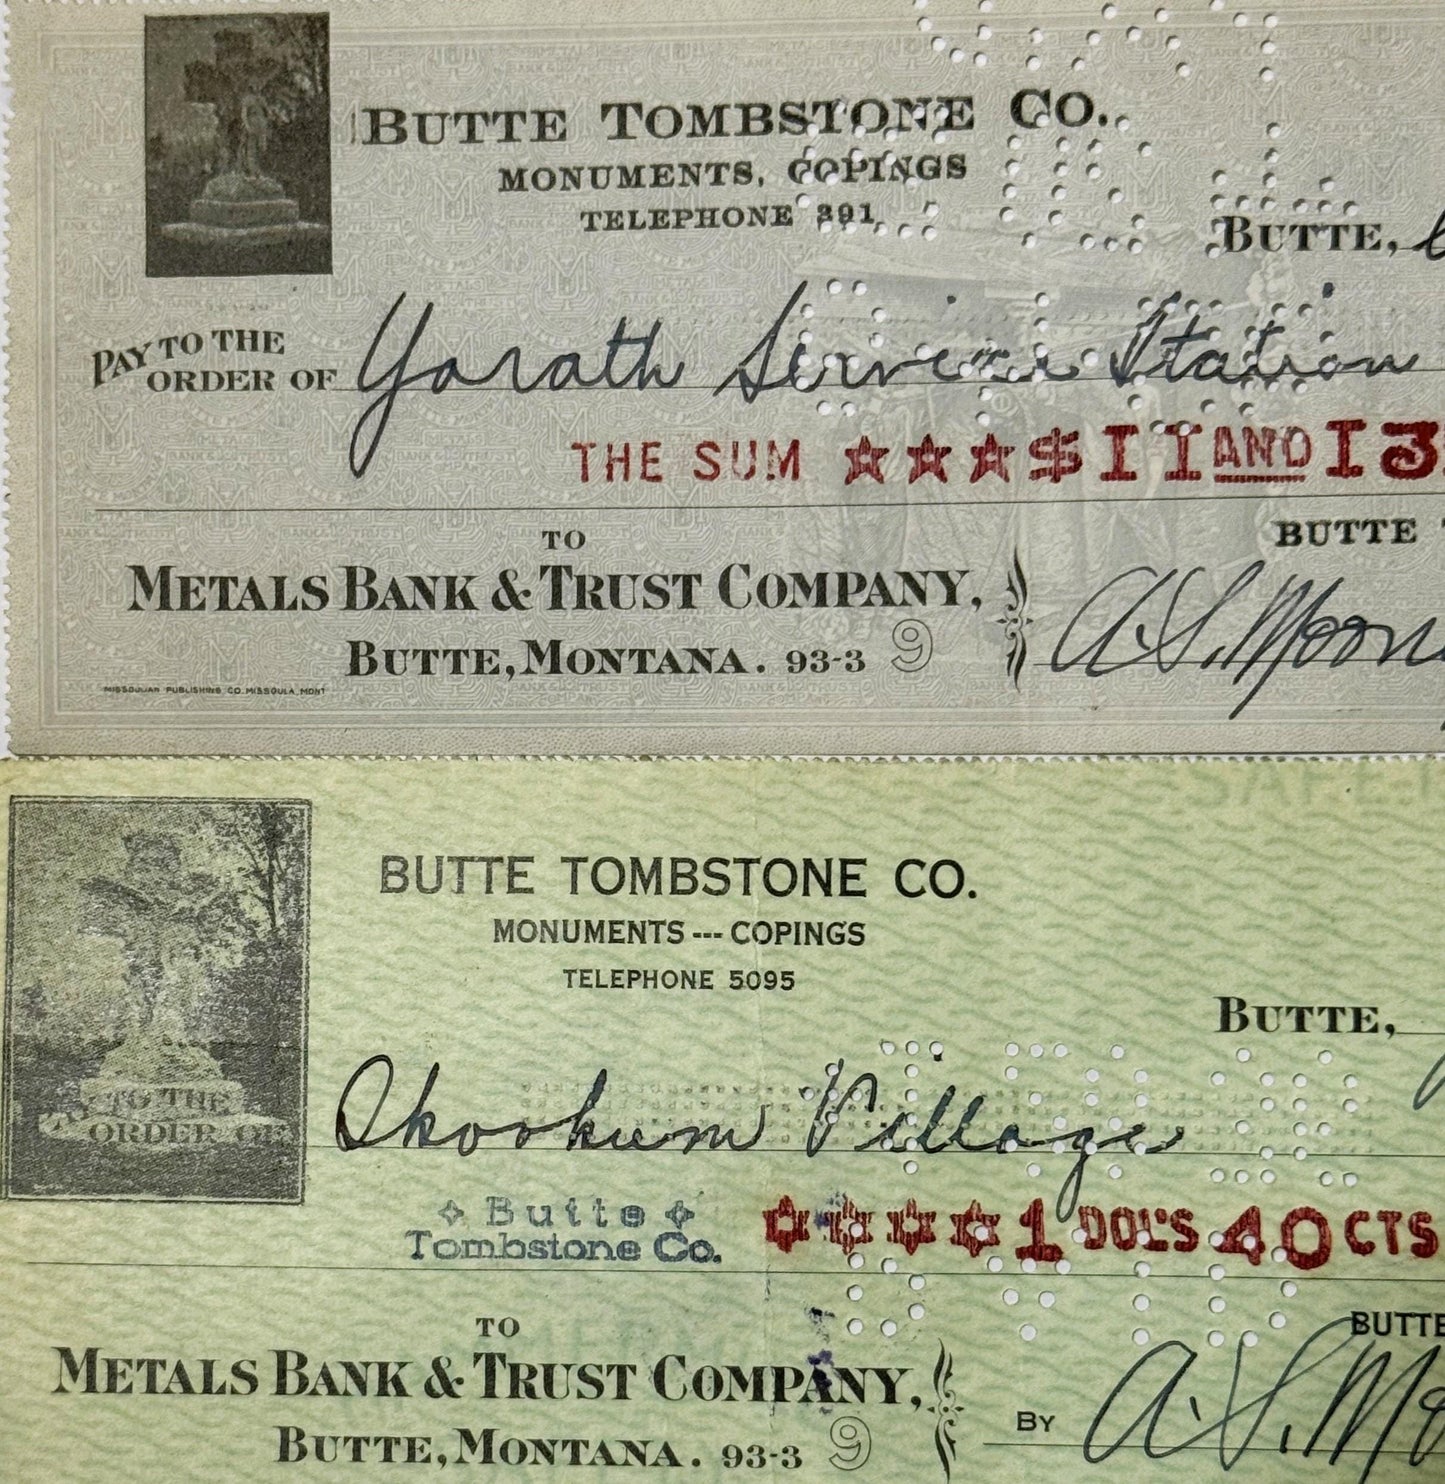 BUTTE TOMBSTONE CO.
MONUMENTS, COPINGS
TELEPHONE 391
BUTTE,
PAY TO THE
ORDER OF Yorath Service Station
THE SUM ★★★$11AND13
TO
BUTTE
METALS BANK & TRUST COMPANY,
A.S. Moon
BUTTE, MONTANA. 93-3 9
MISSOULIAN PUBLISHING CO. MISSOULA, MONT
BUTTE TOMBSTONE CO.
MONUMENTS --- COPINGS
TELEPHONE 5095
BUTTE,
PAY TO THE
ORDER OF Skookum Village
Butte
Tombstone Co.
1 DOL'S 40 CTS
TO
BUTTE
METALS BANK & TRUST COMPANY,
BY A.S. Mo
BUTTE, MONTANA. 93-3 9